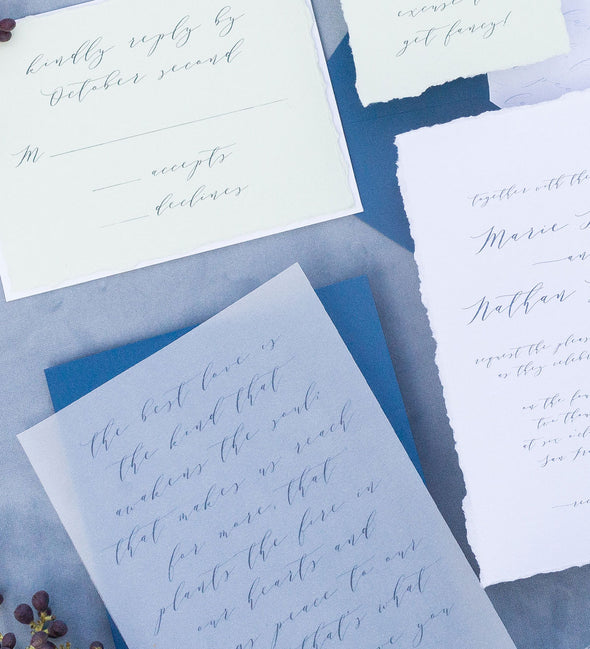 kindly reply by
October second
M
accepts
declines
get fancy!
together with the
Marie
Nathan
request the
as they
on the
two
at six
San
the best love is
the kind that
awakens the soul;
that makes us reach
for more, that
plants the fire in
our hearts and
peace to our
that's what
you